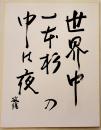 世界中
一本杉の
中は夜